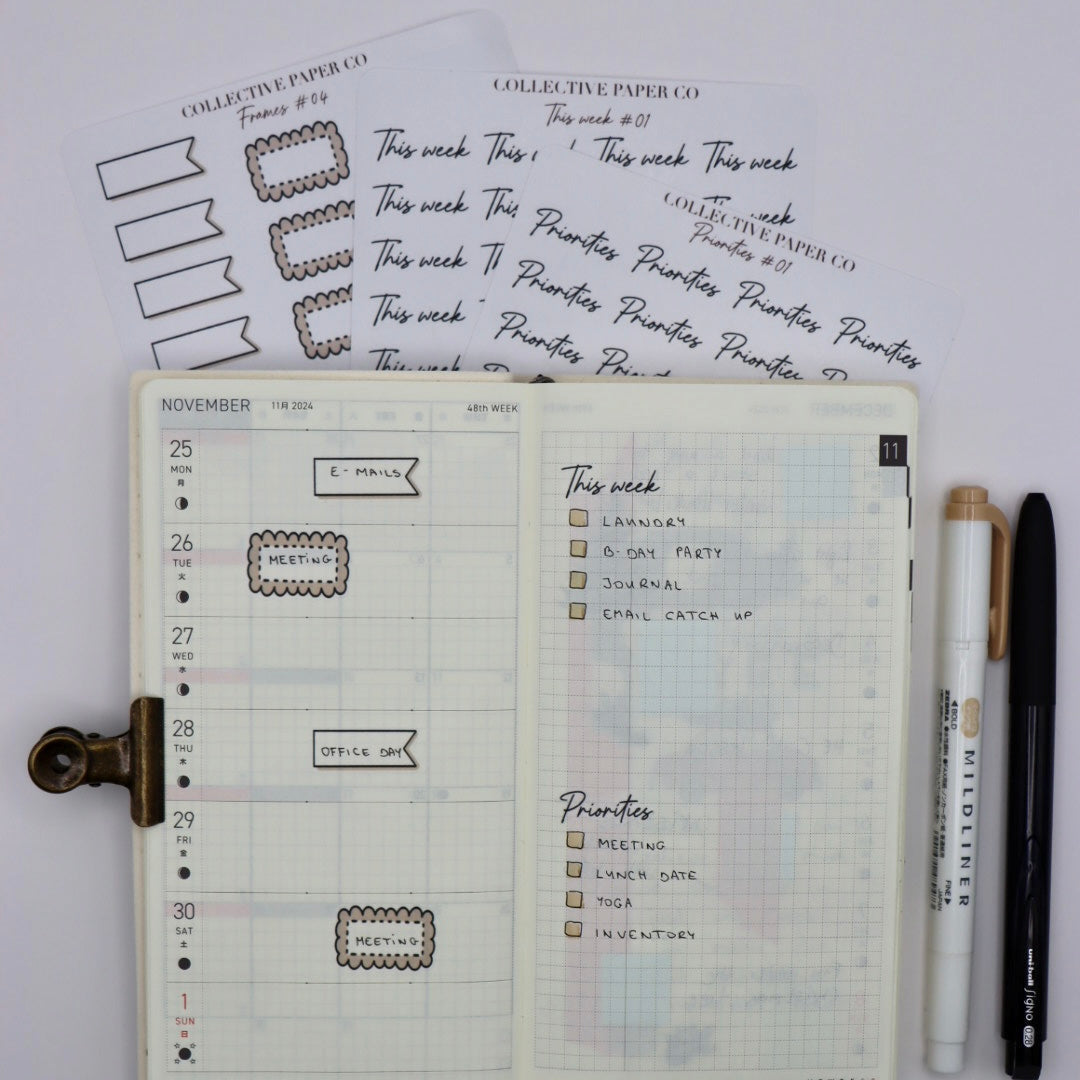 COLLECTIVE PAPER CO
Frames #04
COLLECTIVE PAPER CO
This week #01
This week This This week This week
This week This week
This week
This week
This week
COLLECTIVE PAPER CO
Priorities #01
Priorities Priorities Priorities Priorities
Priorities Priorities Priorities
Priorities
NOVEMBER 11月 2024 48th WEEK
25
MON
月
E-MAILS
26
TUE
火
MEETING
27
WED
水
28
THU
木
OFFICE DAY
29
FRI
金
30
SAT
土
MEETING
1
SUN
日
11
This week
LAUNDRY
B-DAY PARTY
JOURNAL
EMAIL CATCH UP
Priorities
MEETING
LUNCH DATE
YOGA
INVENTORY
ZEBRA
BOLD
MILDLINER
FINE
JAPAN
uni-ball signo 0.28